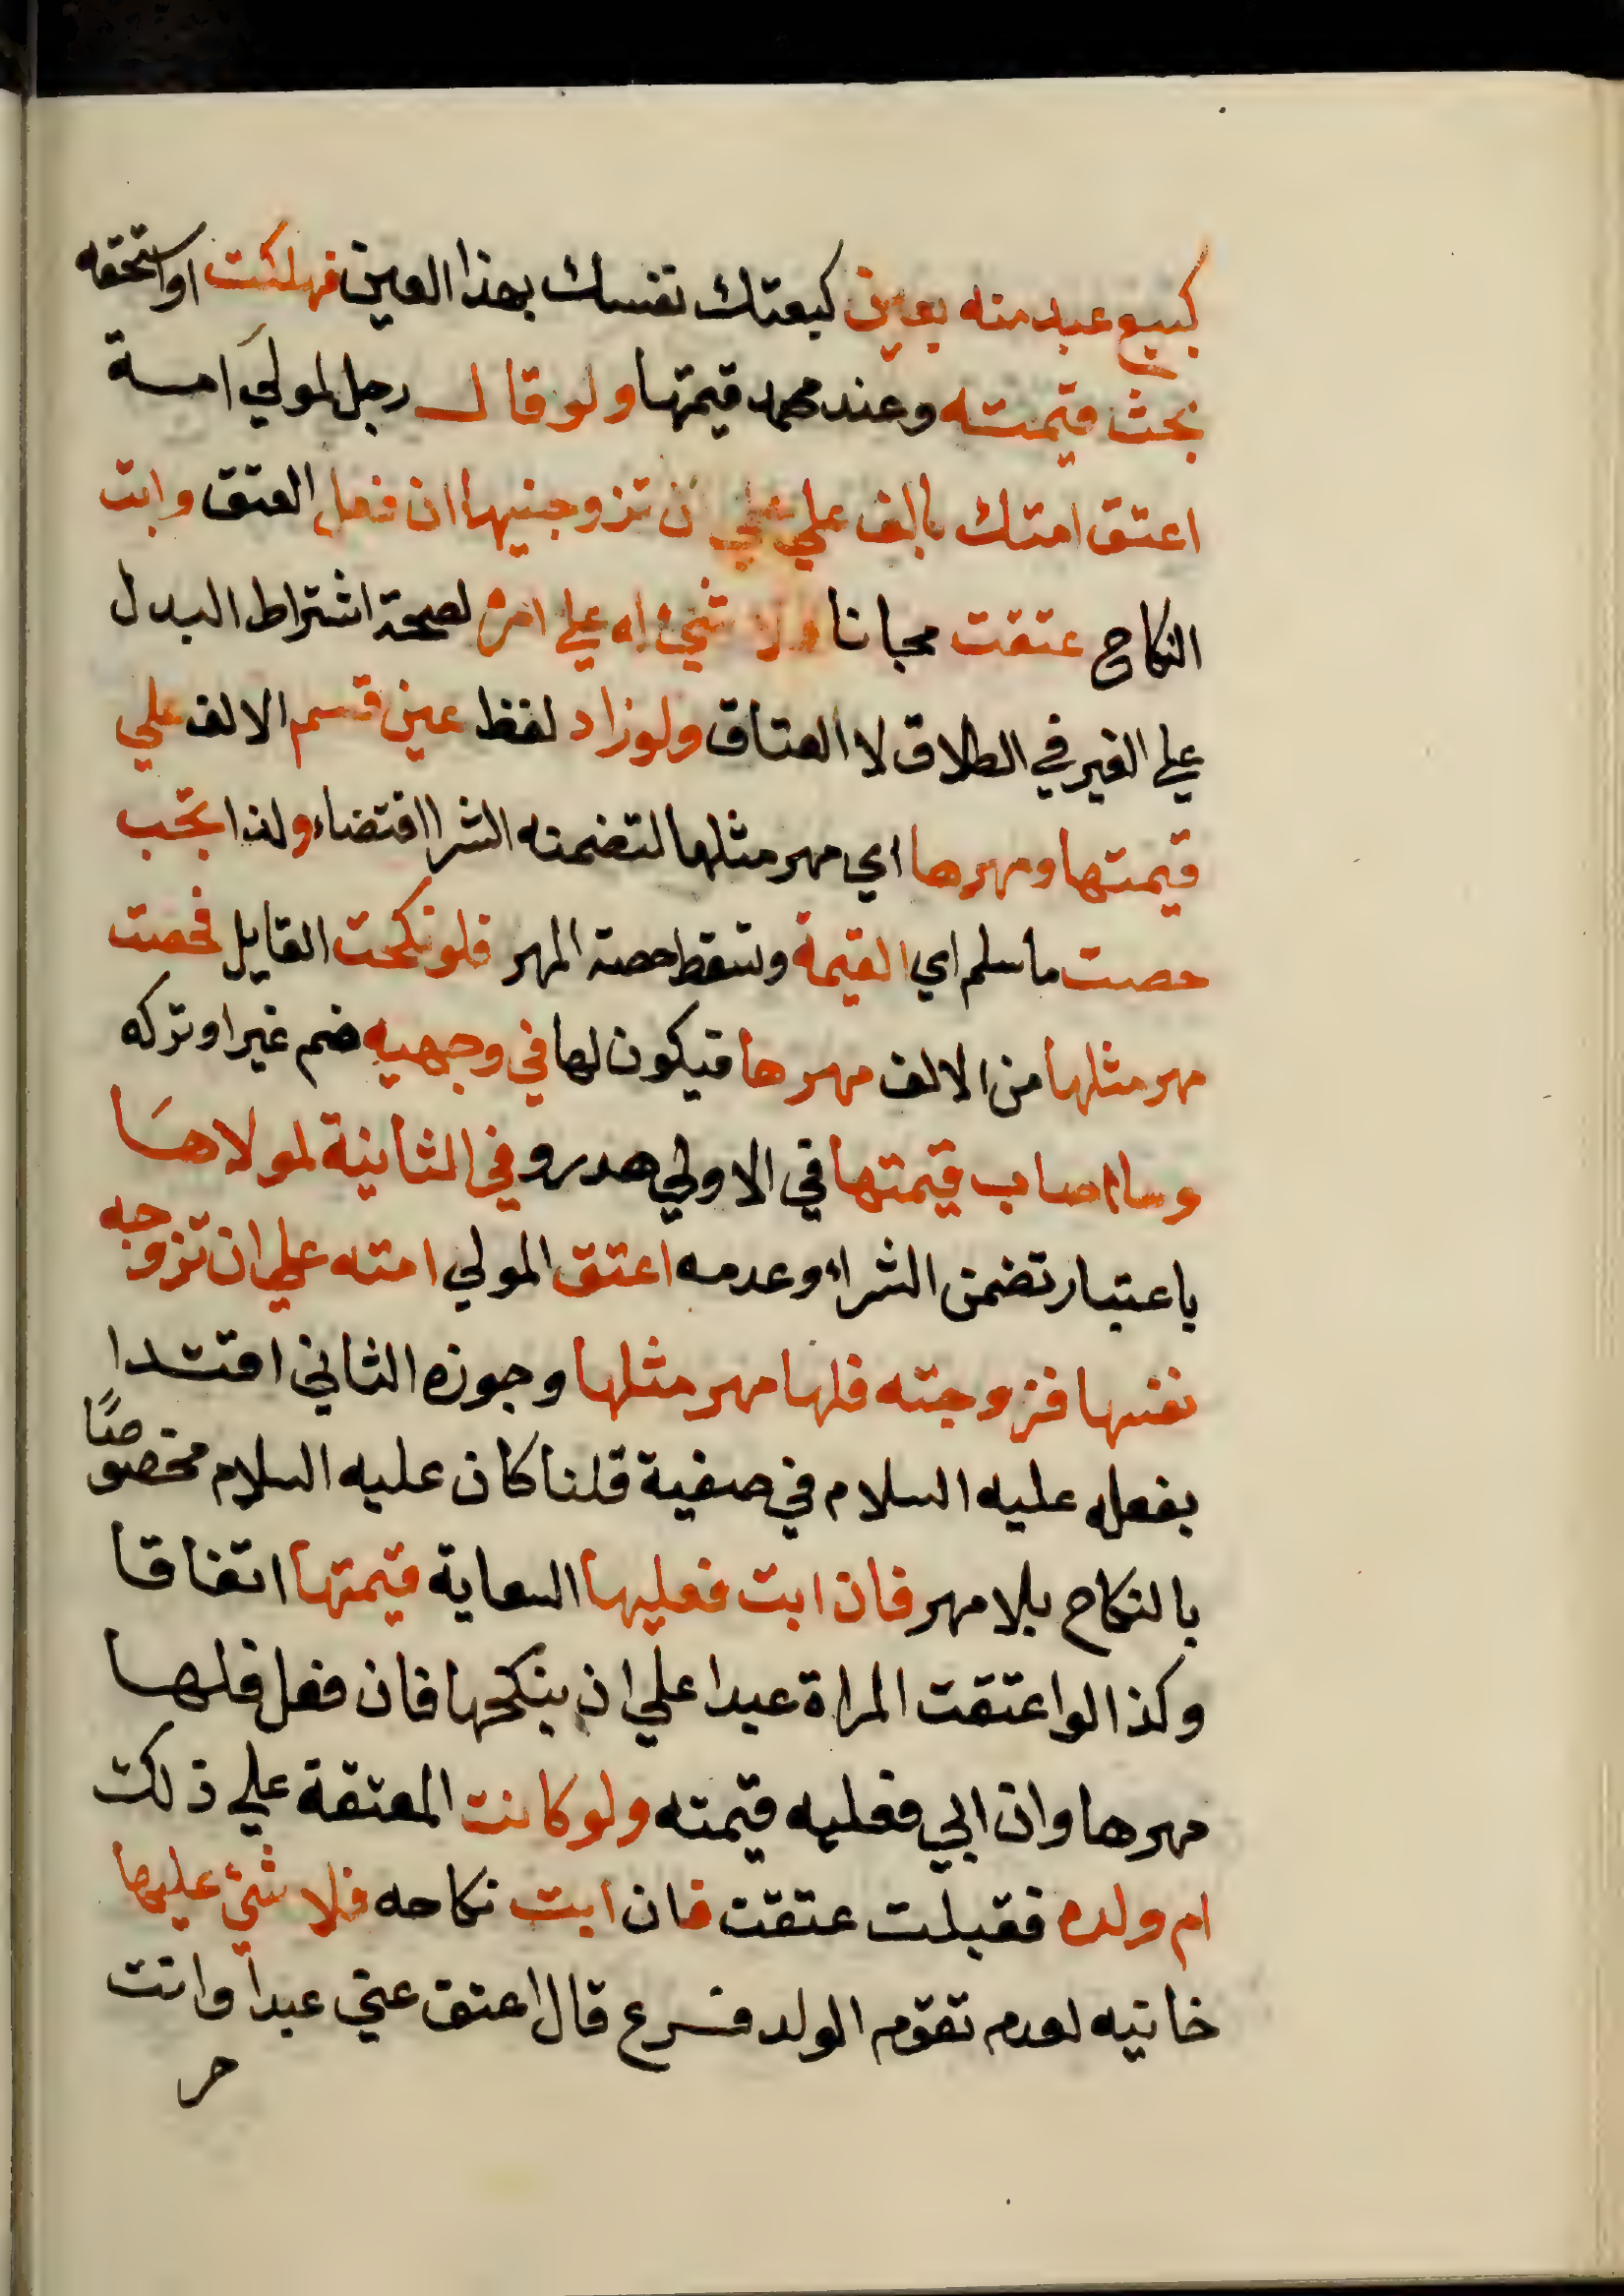 كبيع عبد منه بعين كبعتك نفسك بهذا العين فهلكت او استحقه
بحث قيمته وعند محمد قيمتها ولو قال رجل لمولي امة
اعتق امتك بالف علي علي ان تزوجنيها ان فعل العتق وابت
النكاح عتقت مجانا ولا شيء له علي امره لصحة اشتراط البدل
علي الغير في الطلاق لا العتاق ولو زاد لفظ عين قسم الالف علي
قيمتها ومهرها اي مهر مثلها لتضمنه الشرا اقتضاء ولذا تجب
حصت ما سلم اي القيمة وتسقط حصة المهر فلو نكحت القايل فحصت
مهر مثلها من الالف مهرها فيكون لها في وجهيه ضم غير او تركه
وما اصاب قيمتها في الاولي هدر وفي الثانية لمولاها
باعتبار تضمن الشراء وعدمه اعتق المولي امته علي ان تزوجه
نفسها فزوجته فلها مهر مثلها وجوزه الثاني اقتدا
بفعله عليه السلام في صفية قلنا كان عليه السلام مخصوصًا
بالنكاح بلا مهر فان ابت فعليها السعاية قيمتها اتفاقا
وكذا لو اعتقت المراة عبدا علي ان ينكحها فان فعل فلها
مهرها وان ابي فعليه قيمته ولو كانت المعتقة علي ذلك
ام ولده فقبلت عتقت فان ابت نكاحه فلا شئ عليها
خانيه لعدم تقوم الولد فرع قال اعتق عني عبدا وانت
حر